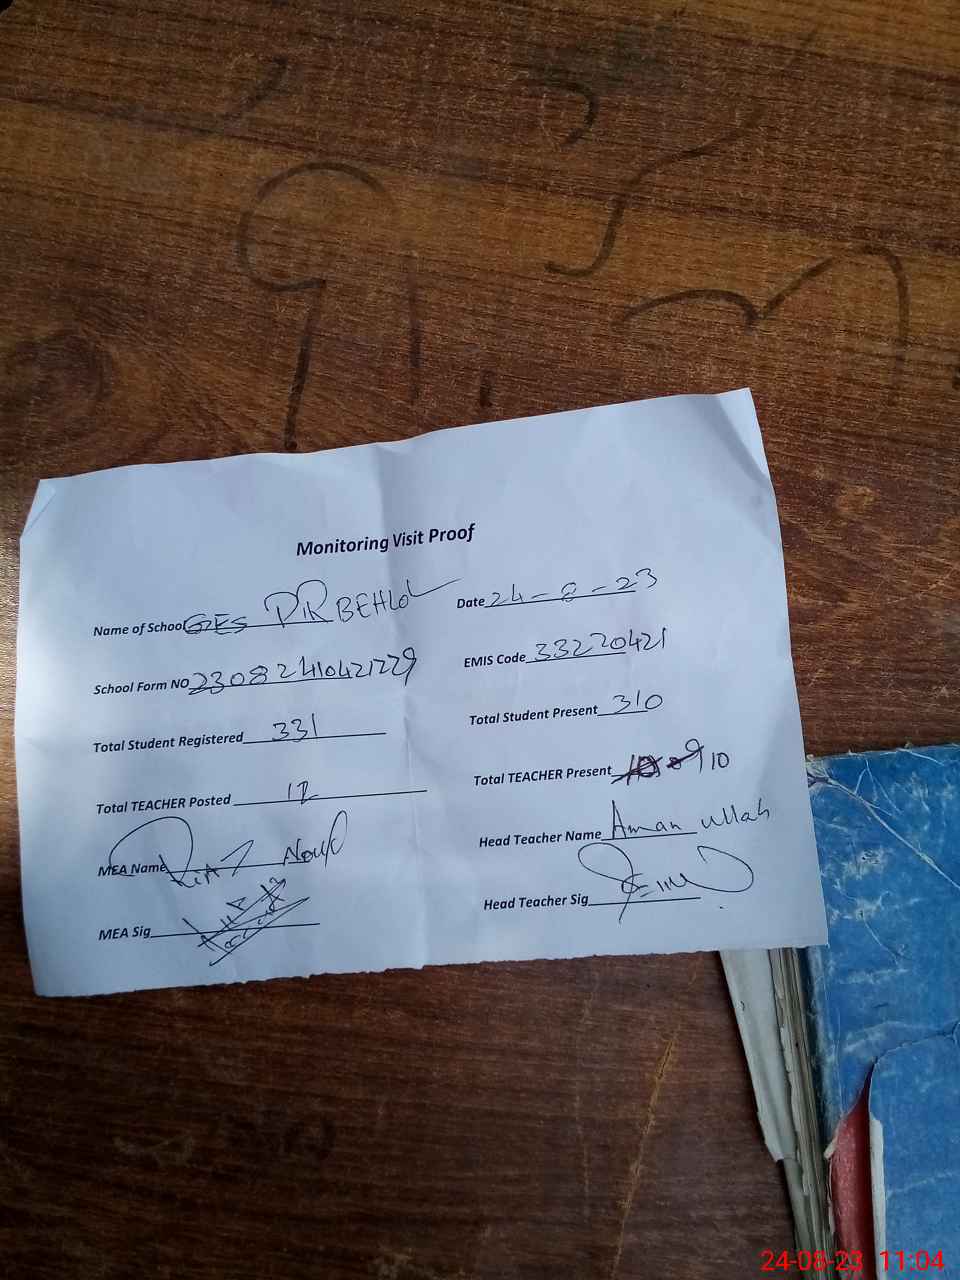 Monitoring Visit Proof
Name of School GES PIR BEHLOL Date 24-8-23
School Form NO 23082410421229 EMIS Code 33220421
Total Student Registered 331 Total Student Present 310
Total TEACHER Posted 12 Total TEACHER Present 10
MEA Name Head Teacher Name Aman ullah
MEA Sig Head Teacher Sig
24-08-23 11:04